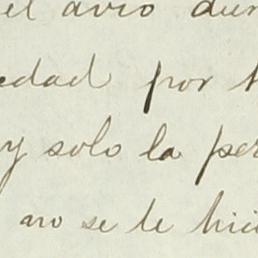 el avio dur
edad por t
y solo la per
ano se le hici